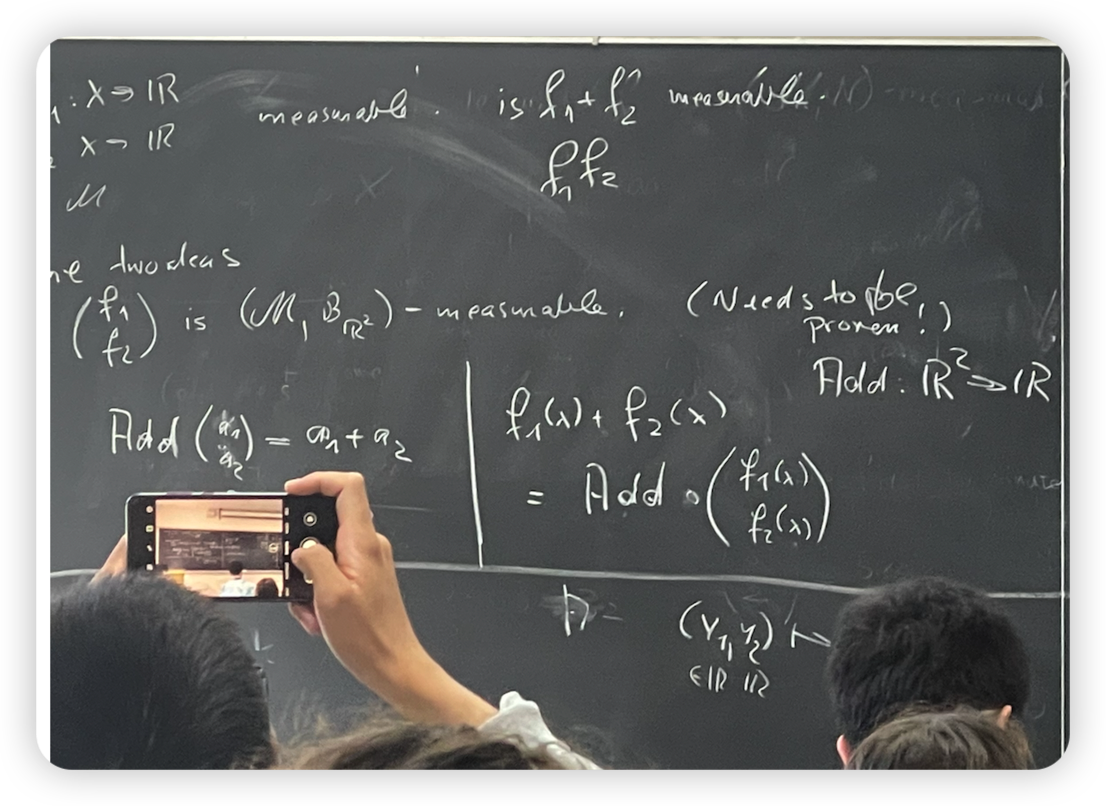 : X → IR measurable. is f₁ + f₂ measurable.
X → IR f₁ f₂
M
two ideas
(f₁ f₂) is (M, B_IR²) - measurable. (Needs to be proven!)
Add: IR² → IR
Add (a₁ a₂) = a₁ + a₂
f₁(x) + f₂(x)
= Add ∘ (f₁(x) f₂(x))
(Y₁, Y₂) ↦
∈ IR IR